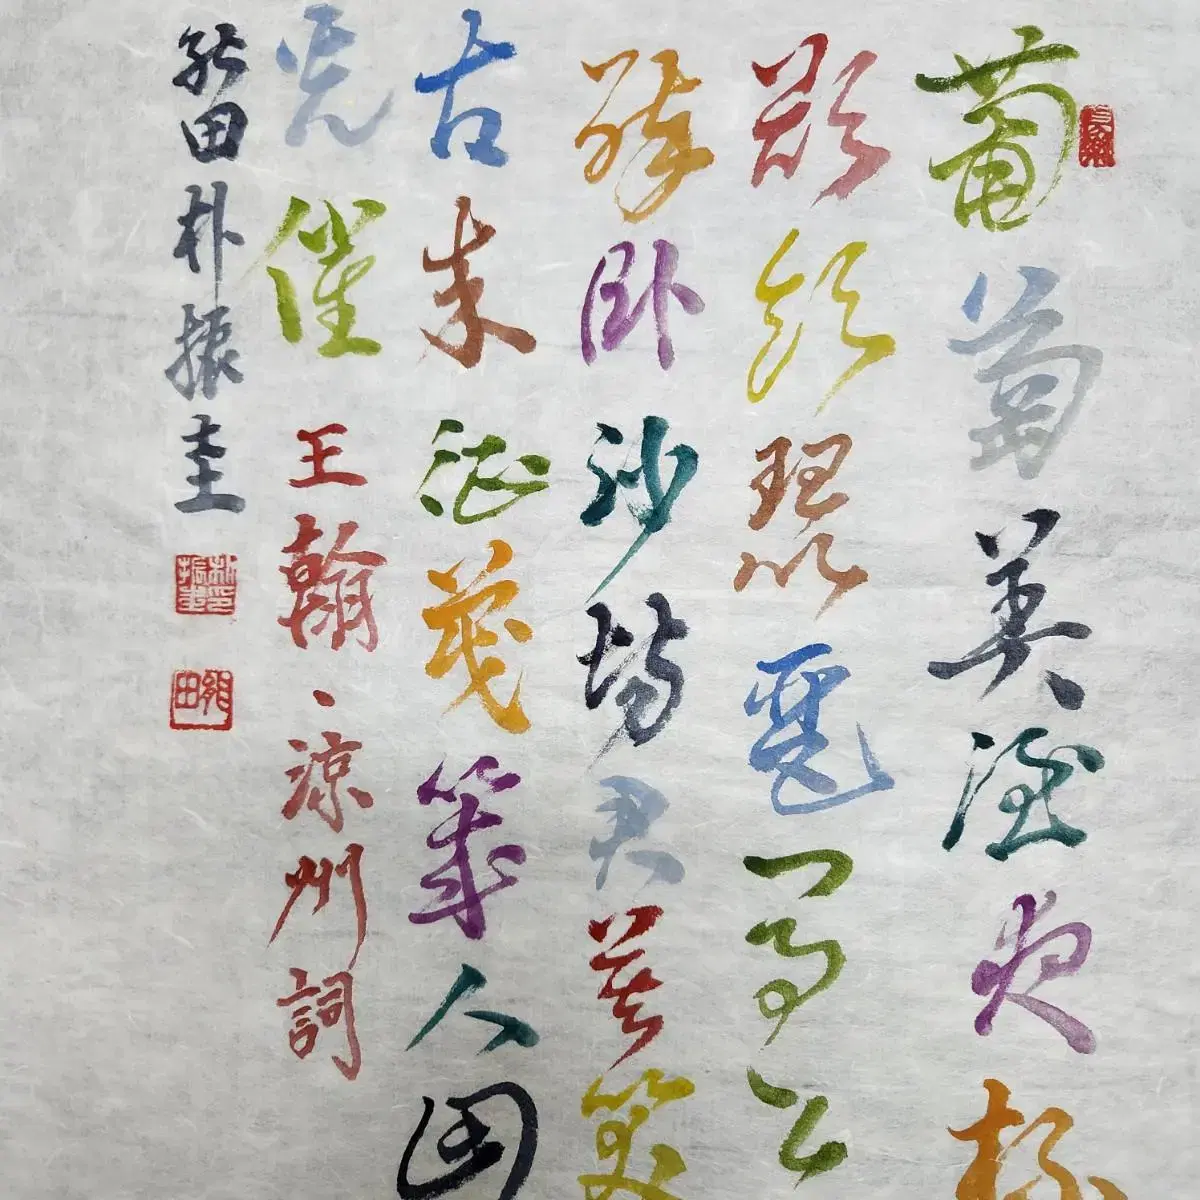 葡萄美酒夜杯
欲飲琵琶馬上
醉臥沙場君莫笑
古來征戰幾人回
光催 王翰·涼州詞
能田朴振圭